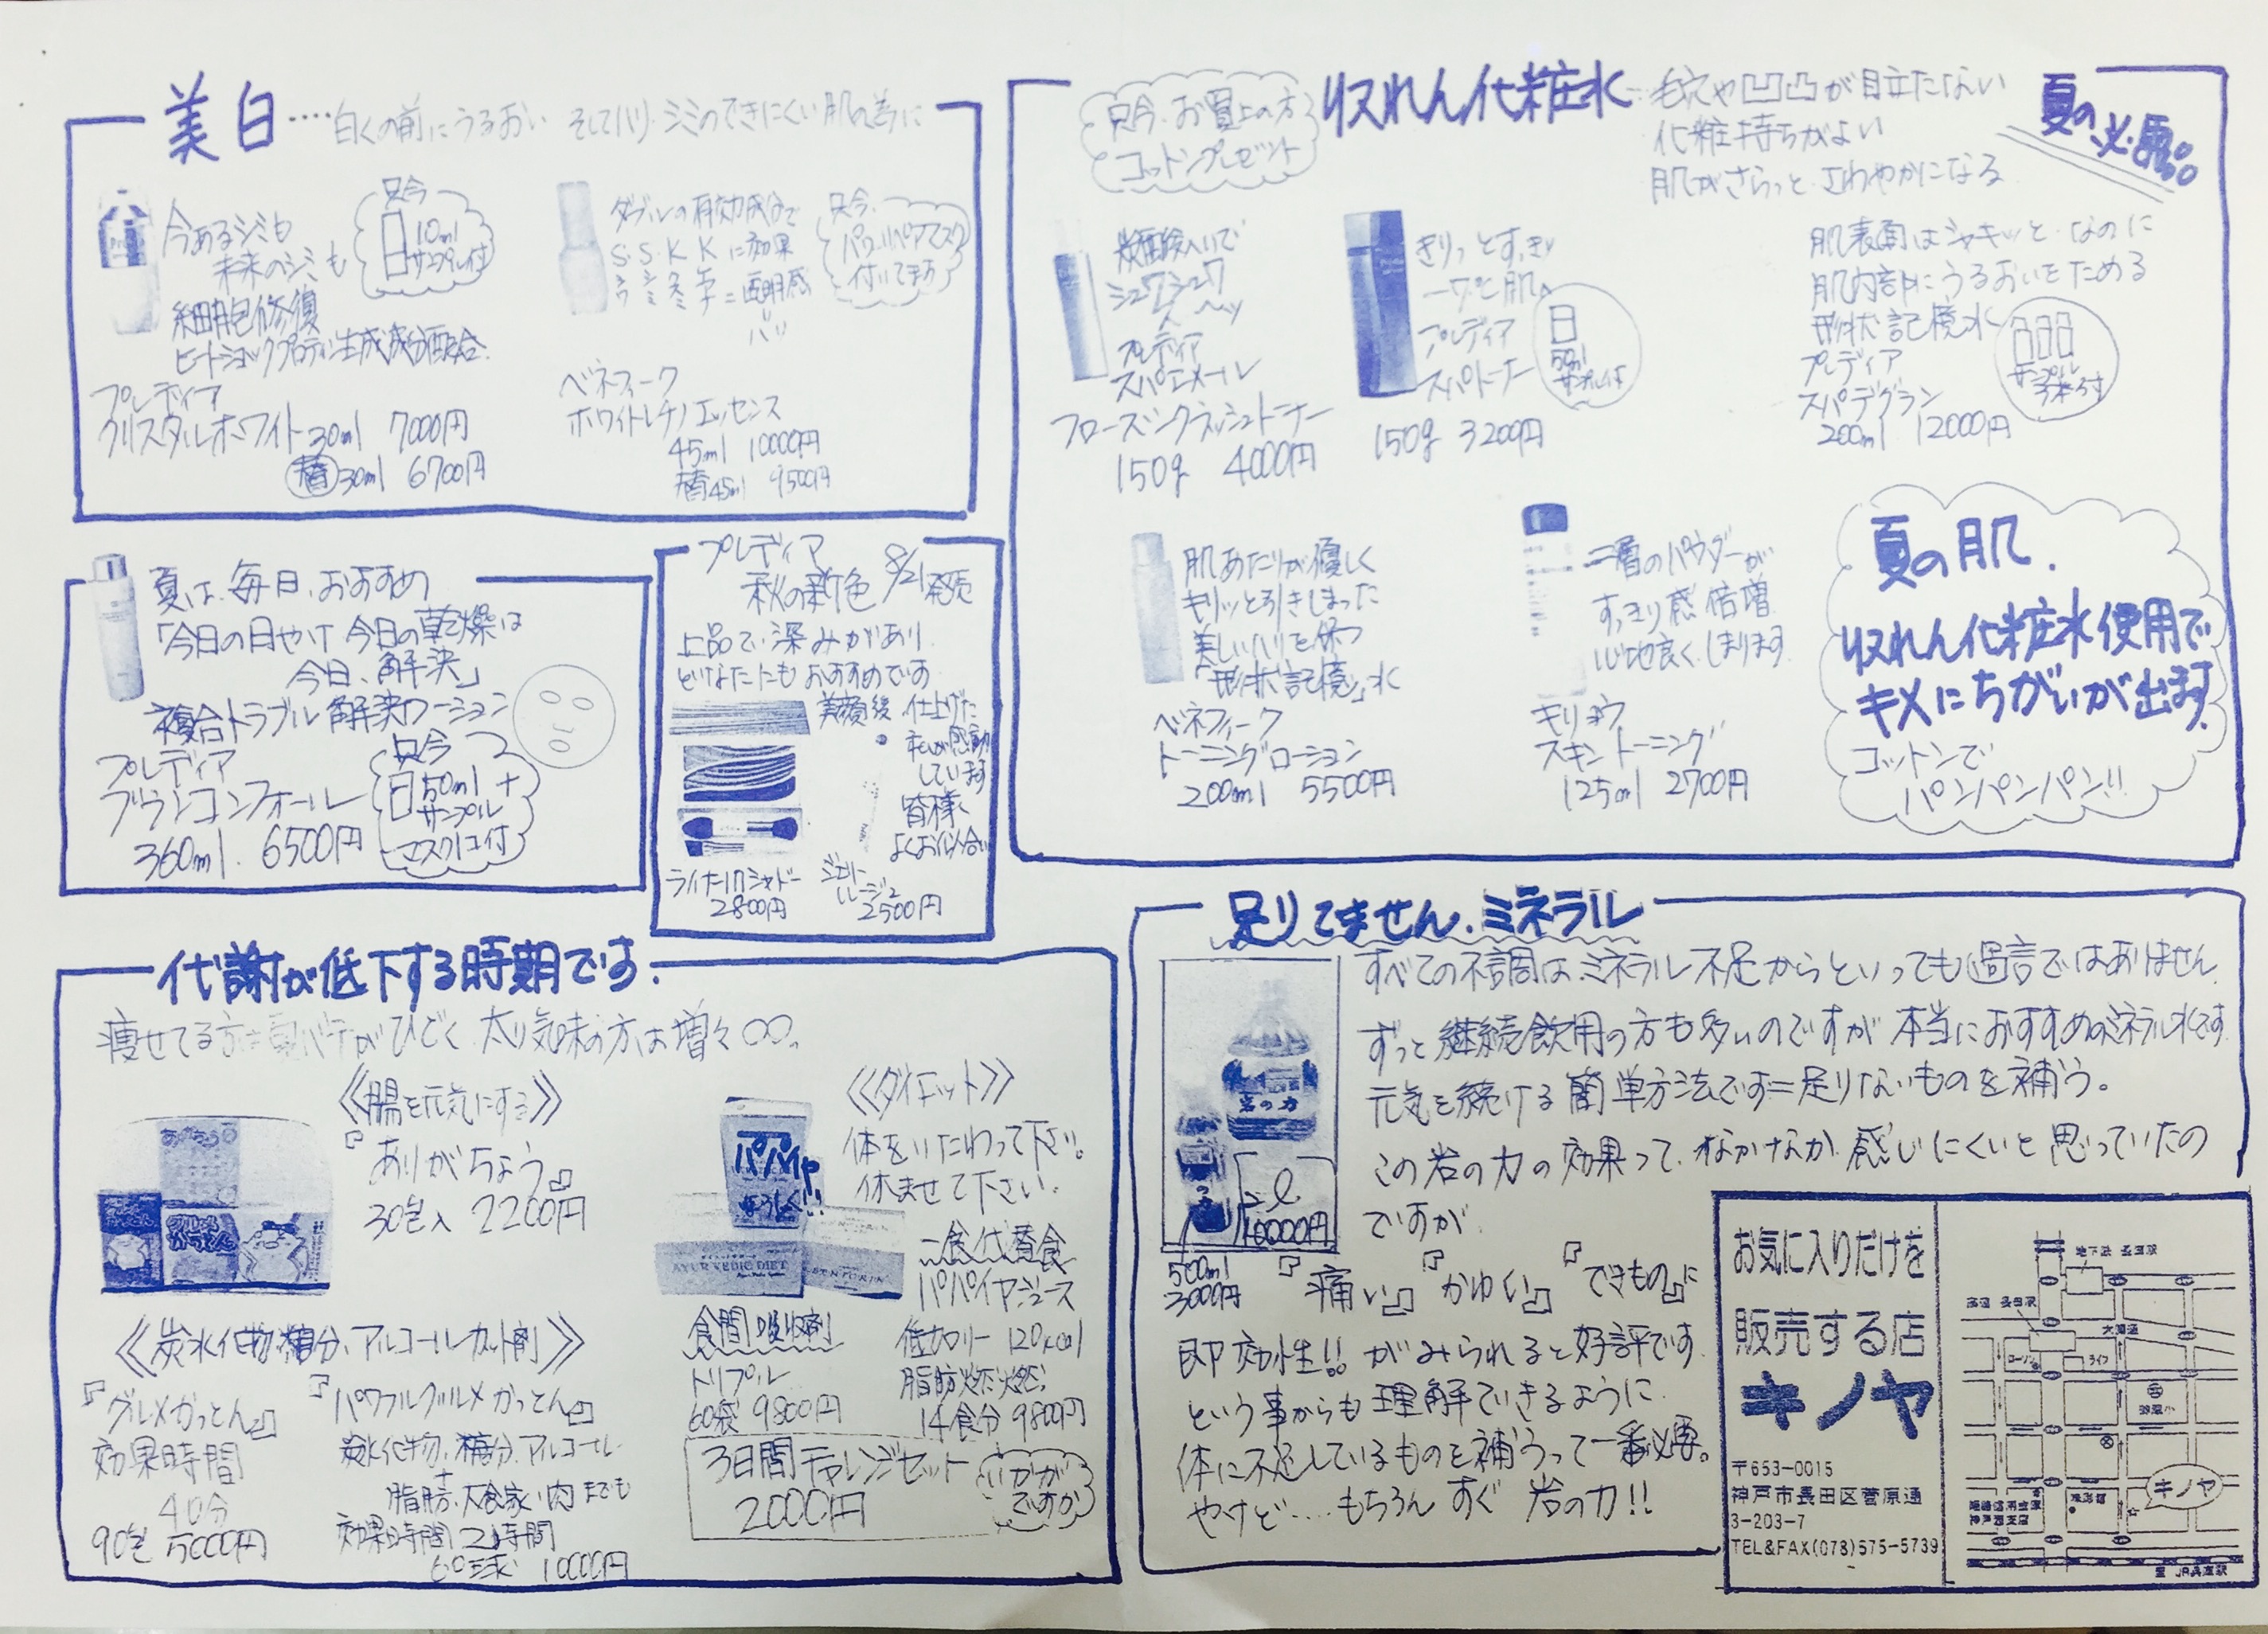 美白‥‥白くの前にうるおい そしてハリ、シミのできにくい肌の為に
今あるシミも
未来のシミも
細胞修復
ヒートショックプロテイン生成成分配合
只今
10ml
サンプル付
プレディア
クリスタルホワイト30ml 7000円
替30ml 6700円
ダブルの有効成分で
S.S.K.Kに効果
=透明感
只今、
パワーリペアマスク
付いてます
ベネフィーク
ホワイトレチノエッセンス
45ml 10000円
替45ml 9500円
只今、お買上の方
コットンプレゼント
収れん化粧水
毛穴や凹凸が目立たない
化粧持ちがよい
肌がさらっと、さわやかになる
夏の必需品
炭酸入りで
シュワシュワ
プレディア
スパエメール
フローズンクラッシュトーナー
150g 4000円
きりっとすっきり
プレディア
スパトーナー
50ml
サンプル付
150g 3200円
肌表面はシャキッと、なのに
肌内部にうるおいをためる
形状記憶水
プレディア
スパデグラン
200ml 12000円
サンプル
3本付
肌あたりが優しく
キリッと引きしまった
美しいハリを保つ
「形状記憶」水
ベネフィーク
トーニングローション
200ml 5500円
二層のパウダーが
すっきり感倍増
心地良く、しまります
キリョウ
スキントーニング
125ml 2700円
夏の肌、
収れん化粧水使用で
キメにちがいが出ます
コットンで
パンパンパン!!
夏は、毎日、おすすめ
「今日の日やけ 今日の乾燥は
今日、解決」
複合トラブル解決ローション
プレディア
ブランコンフォール
360ml 6500円
只今
50ml +
サンプル
マスク1コ付
プレディア
秋の新色 8/21発売
上品で深みがあり
どなたにもおすすめです
美顔後、仕上げた
私が感動
しています
皆様、
よくお似合い
ライナー1 シャドー
2800円
ジェリー
ルージュ
2500円
代謝が低下する時期です.
痩せてる方は夏バテがひどく 太り気味の方は増々○○。
《腸を元気にする》
『ありがちょう』
30包入 2200円
《炭水化物、糖分、アルコールカット剤》
『グルメかっとん』
効果時間
40分
90包 5000円
『パワフルグルメかっとん』
炭水化物、糖分、アルコール
+
脂肪、大食家、肉までも
効果時間 2時間
60球 10000円
《ダイエット》
体をいたわって下さい。
休ませて下さい.
一食代替食
パパイヤジュース
低カロリー 120kcal
脂肪燃燃!
14食分 9800円
パパイヤ
AYURVEDIC DIET
食間吸収剤
トリプル
60袋 9800円
3日間チャレンジセット
2000円
いかが
ですか
足りてません、ミネラル
すべての不調は、ミネラル不足からといっても過言ではありません.
ずっと継続飲用の方も多いのですが 本当におすすめのミネラル水です.
元気を続ける簡単方法です=足りないものを補う。
この岩の力の効果って、なかなか感じにくいと思っていたの
ですが
岩の力
2ℓ
10000円
500ml
3000円
『痛い』『かゆい』『できもの』に
即効性!! がみられると好評です
という事からも理解できるように
体に不足しているものを補うって一番必要。
やけど‥‥もちろん すぐ 岩の力!!
お気に入りだけを
販売する店
キノヤ
〒653-0015
神戸市長田区菅原通
3-203-7
TEL&FAX(078)575-5739
地下鉄 長田駅
高速 長田駅
大開通
ローソン
ライフ
キノヤ
至 JR兵庫駅